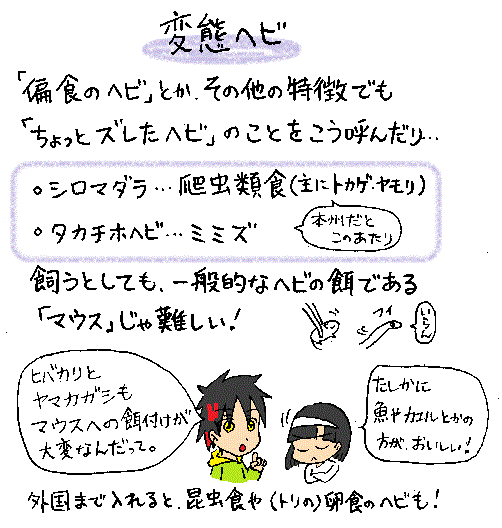 変態ヘビ
「偏食のヘビ」とか、その他の特徴でも
「ちょっとズレたヘビ」のことをこう呼んだり…
○シロマダラ…爬虫類食(主にトカゲ・ヤモリ)
○タカチホヘビ…ミミズ
本州だと
このあたり
飼うとしても、一般的なヘビの餌である
「マウス」じゃ難しい!
フイ
いらん
ヒバカリと
ヤマカガシも
マウスへの餌付けが
大変なんだって。
たしかに
魚やカエルとかの
方が、おいしい!
外国まで入れると、昆虫食や(トリの)卵食のヘビも!